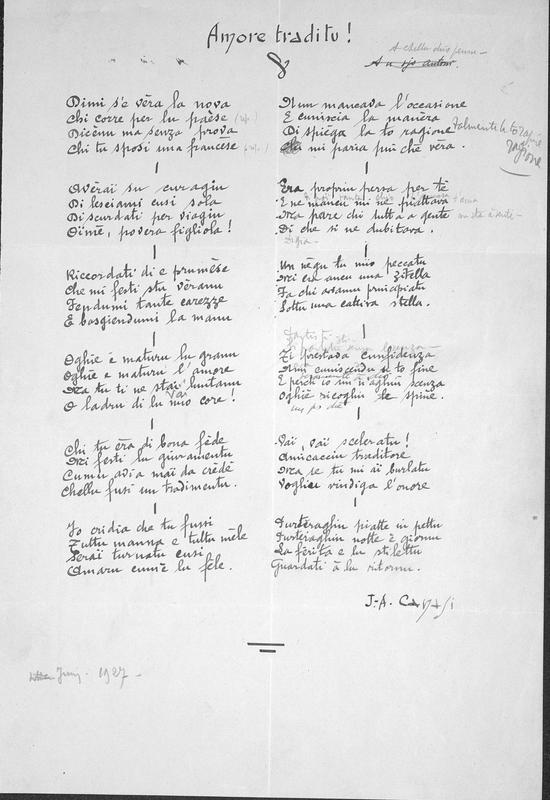 Amore traditu !
A chellu chi
Dimi s'e vèra la nova
Chi corre per lu paese
Dicenu ma senza prova
Chi tu sposi una francese
Averai su curagiu
Di lesciami cusi sola
Di scurdati per viagiu
Dimè, povera figliola !
Riccordati di e prumèse
Che mi festi stu veranu
Fendumi tante carezze
E basgiendumi la manu
Oghie è maturu lu granu
Oghie è maturu l'amore
Ma tu ti ne stai luntanu
Vai
O ladru di lu mio core !
Chi tu èra di bona fède
Mi festi lu giuramentu
Cumu avia mai da crède
Chellu fussi un tradimentu.
Io cridia che tu fussi
Tuttu manna e tuttu mèle
Serai turnatu cusi
Amaru cumè lu fèle.
Nun mancava l'occasione
E cuniscia la manèra
Di spiéga la to ragione
mi paria più chè vèra.
talmente la to
ragione
Era propriu persa per tè
E ne mancu mi ne
Ma pare chi tutta a gente
Di che si ne dubitava.
Un nègu tu mio peccatu
Mi eu ancu una zitella
Fa chi avamu principiatu
Sottu una cattiva stella.
Ti prestada cunfidenza
Nun cuniscendu u to fine
E perch' io un n'aghiu scenza
Oghiè ricoghiu le spine.
Vai, vai sceleratu !
Amicacciu traditore
Ma se tu mi ai burlatu
Voghieu vindiga l'onore
Purteraghiu piatte in pettu
Purteraghiu notte è giornu
La ferita e lu stilettu
Guardati à lu ritornu.
J.-A. Canasi
1927 -